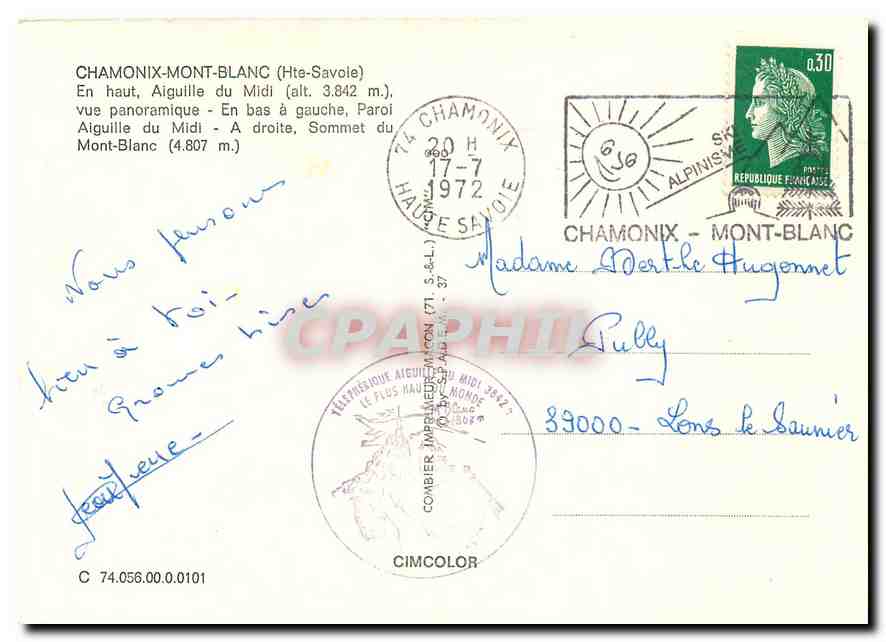 CHAMONIX-MONT-BLANC (Hte-Savoie)
En haut, Aiguille du Midi (alt. 3.842 m.),
vue panoramique - En bas à gauche, Paroi
Aiguille du Midi - A droite, Sommet du
Mont-Blanc (4.807 m.)
74 CHAMONIX
20 H
17-7
1972
HAUTE SAVOIE
SKI
ALPINISME
CHAMONIX - MONT-BLANC
0,30
POSTES
REPUBLIQUE FRANÇAISE
Nous pensons
bien à toi -
Grosses bises
Madame Berthe Hugonnet
Pully
39000 - Lons le Saunier
CPAPHIL
TÉLÉPHÉRIQUE AIGUILLE DU MIDI 3842m
LE PLUS HAUT DU MONDE
COMBIER IMPRIMEUR MACON (71. S.-&-L.) "CIM"
© by S.P.A.D.E.M. - 37
CIMCOLOR
C 74.056.00.0.0101